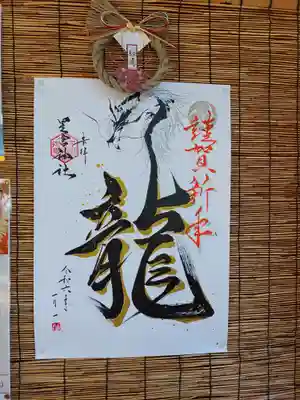 謹賀新年
龍
奉拝
星宮神社
令和六年
一月一日